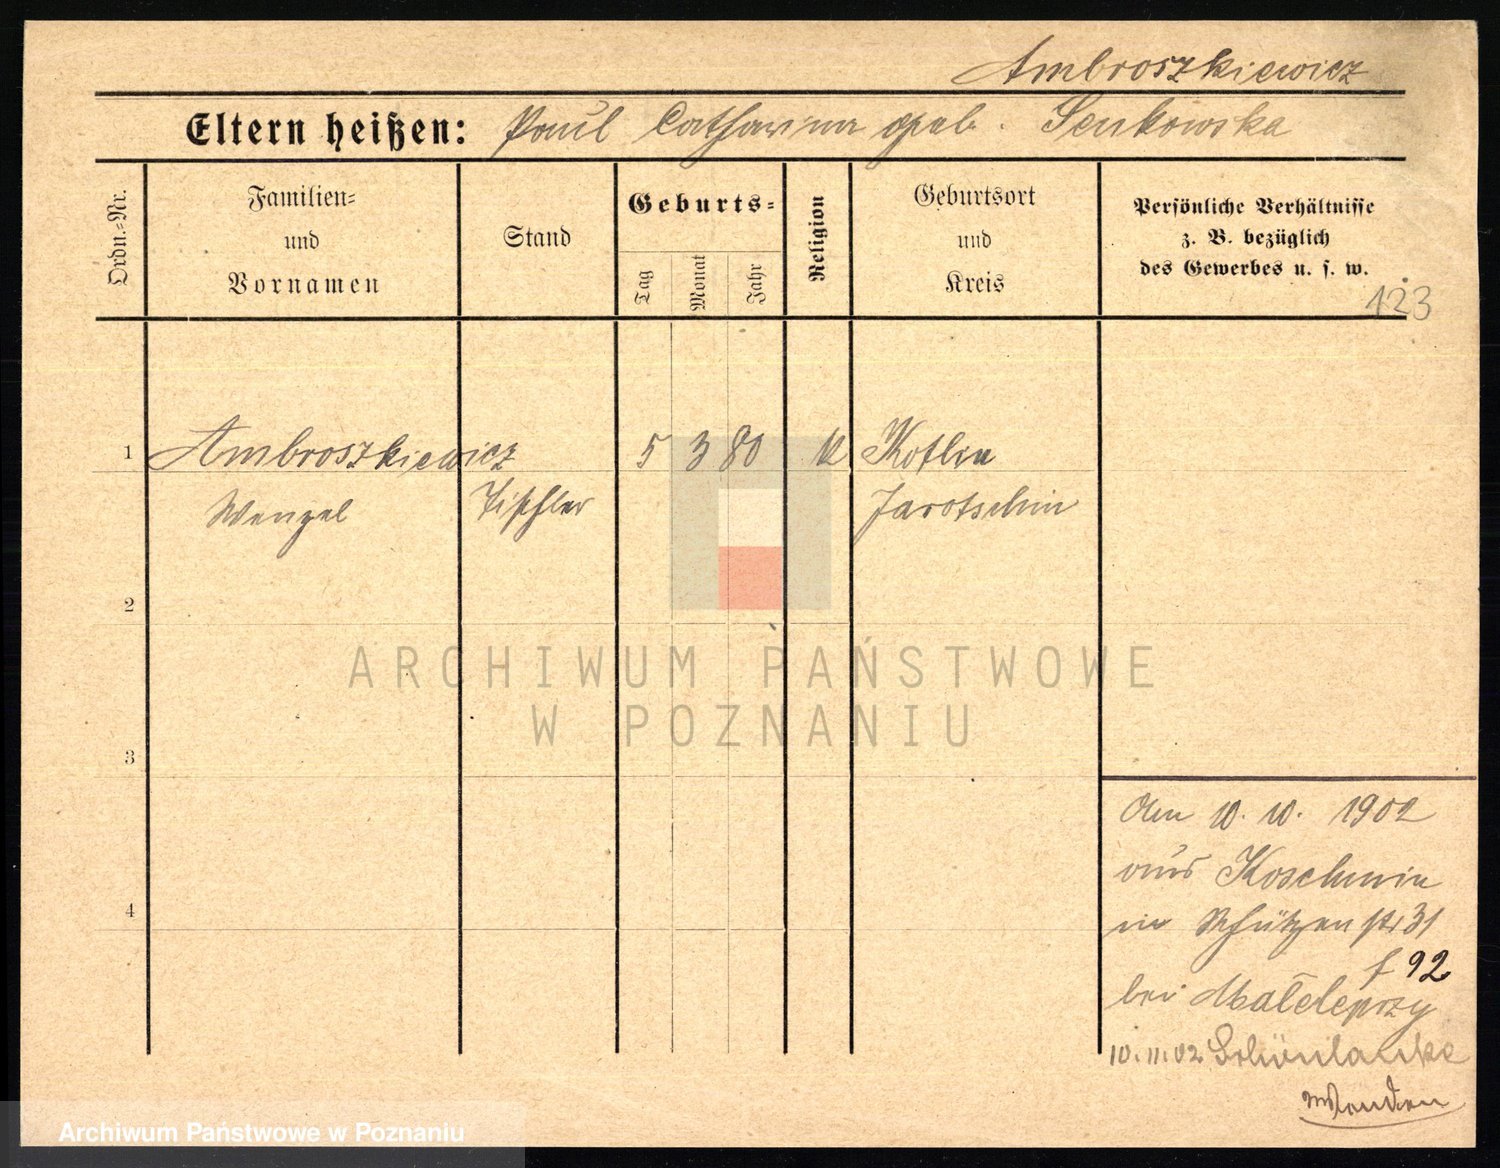 Ambroszkiewicz
Eltern heißen: Paul Catharina geb. Senkowska
Ordn.-Nr.
Familien-
und
Vornamen
Stand
Geburts-
Tag
Monat
Jahr
Religion
Geburtsort
und
Kreis
Persönliche Verhältnisse
z. B. bezüglich
des Gewerbes u. s. w.
123
1 Ambroszkiewicz 5 3 80 k Kotlin
Wenzel Tischler Jarotschin
2
3
4
ARCHIWUM PAŃSTWOWE
W POZNANIU
Am 10. 10. 1902
aus Koschmin
in Schützenstr 31
f 92
bei Małecki
10.11.02 Schönlanke
Archiwum Państwowe w Poznaniu